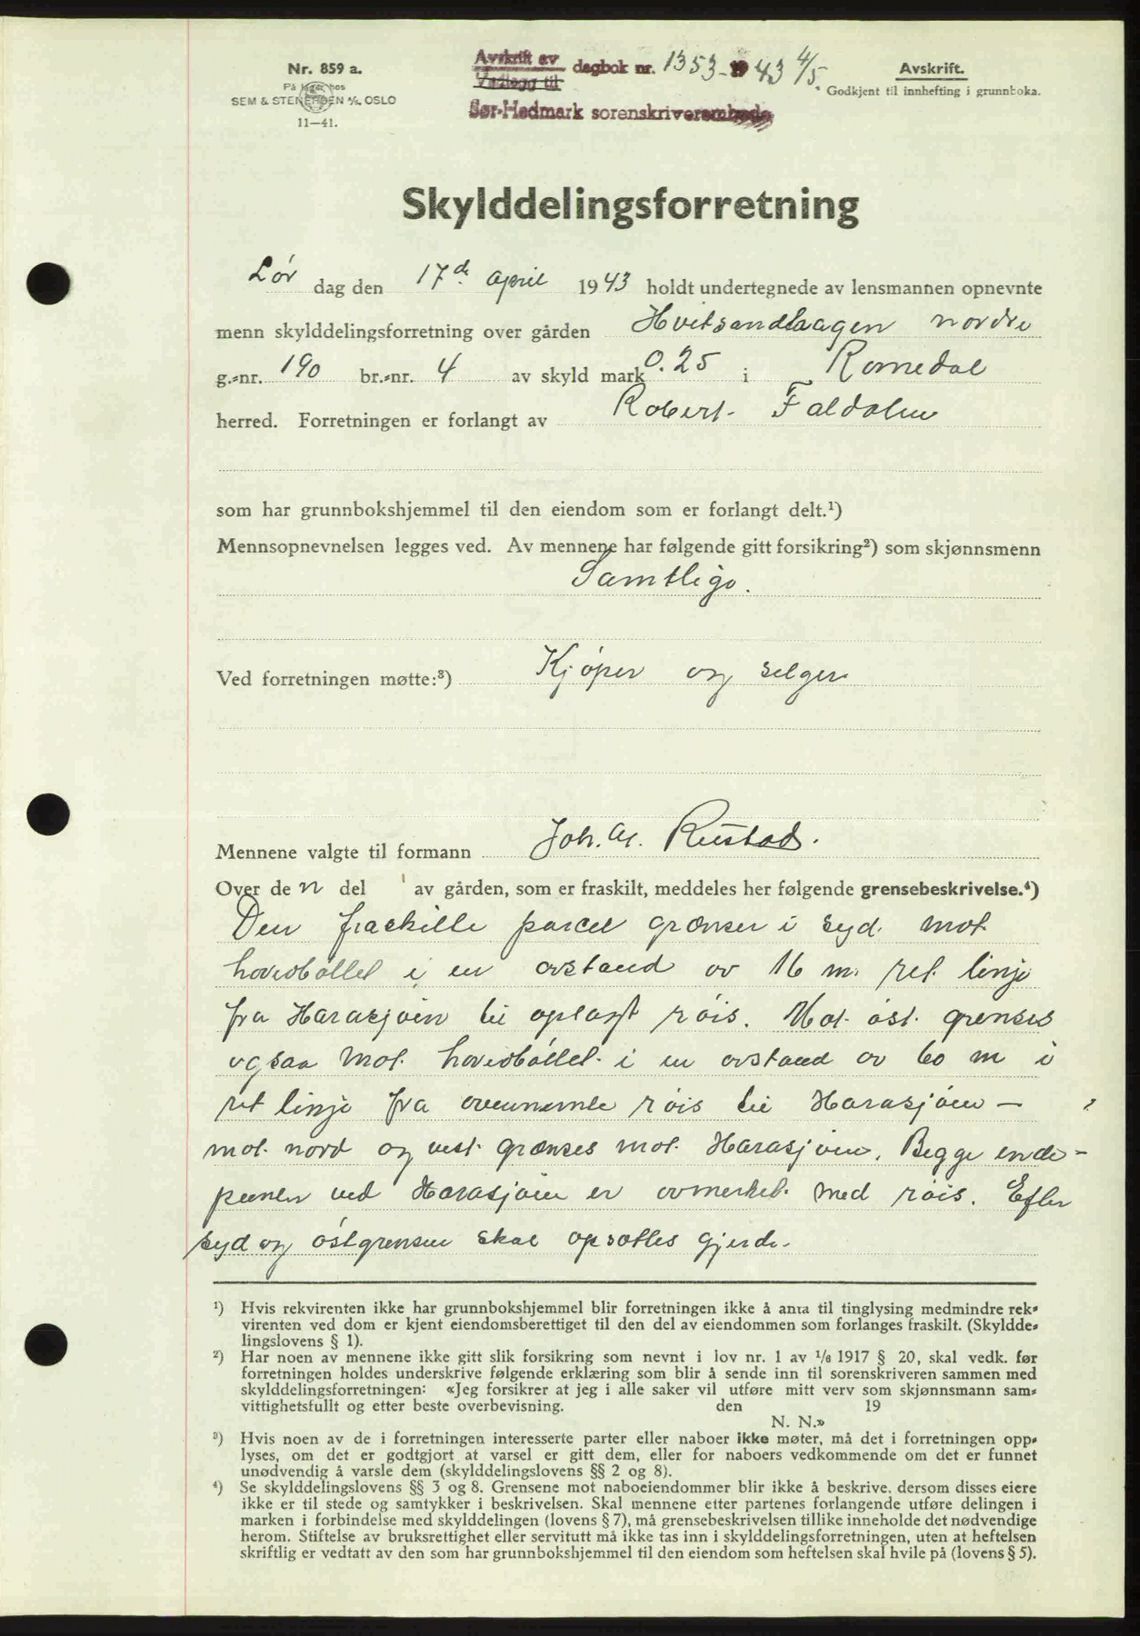 Nr. 859 a.
På lager hos
SEM & STENERSEN A/S, OSLO
11—41.
Avskrift av
Vedlegg til
dagbok nr. 1353 - 1943 4/5.
Sør-Hedmark sorenskriverembede
Avskrift.
Godkjent til innhefting i grunnboka.
Skylddelingsforretning
Lør dag den 17de april 1943 holdt undertegnede av lensmannen opnevnte
menn skylddelingsforretning over gården Hvitsandhaagen nordre
g.-nr. 190 br.-nr. 4 av skyld mark 0.25 i Romedal
herred. Forretningen er forlangt av Robert Faldolen
som har grunnbokshjemmel til den eiendom som er forlangt delt.¹)
Mennsopnevnelsen legges ved. Av mennene har følgende gitt forsikring²) som skjønnsmenn
Samtlige.
Ved forretningen møtte:³) Kjøper og selger
Mennene valgte til formann Joh. M. Rustad.
Over de n del av gården, som er fraskilt, meddeles her følgende grensebeskrivelse.⁴)
Den fraskille parcel grænser i syd. mot
hovedbøllet i en avstand av 16 m. ret linje
fra Harasjøen til oplagt røis. Mot øst. grenses
ogsaa mot hovedbøllet i en avstand av 60 m i
ret linje fra ovennevnte røis til Harasjøen —
mot nord og vest grænses mot Harasjøen. Begge ende-
punkter ved Harasjøen er avmerket med røis. Efter
syd og østgrensen skal opsattes gjerde.
¹) Hvis rekvirenten ikke har grunnbokshjemmel blir forretningen ikke å anta til tinglysing medmindre rek-
virenten ved dom er kjent eiendomsberettiget til den del av eiendommen som forlanges fraskilt. (Skyldde-
lingslovens § 1).
²) Har noen av mennene ikke gitt slik forsikring som nevnt i lov nr. 1 av 1/6 1917 § 20, skal vedk. før
forretningen holdes underskrive følgende erklæring som blir å sende inn til sorenskriveren sammen med
skylddelingsforretningen: «Jeg forsikrer at jeg i alle saker vil utføre mitt verv som skjønnsmann sam-
vittighetsfullt og etter beste overbevisning. den 19
N. N.»
³) Hvis noen av de i forretningen interesserte parter eller naboer ikke møter, må det i forretningen opp-
lyses, om det er godtgjort at varsel er gitt dem, eller for naboers vedkommende om det er funnet
unødvendig å varsle dem (skylddelingslovens §§ 2 og 8).
⁴) Se skylddelingslovens §§ 3 og 8. Grensene mot naboeiendommer blir ikke å beskrive, dersom disses eiere
ikke er til stede og samtykker i beskrivelsen. Skal mennene etter partenes forlangende utføre delingen i
marken i forbindelse med skylddelingen (lovens § 7), må grensebeskrivelsen tillike inneholde det nødvendige
herom. Stiftelse av bruksrettighet eller servitutt må ikke tas inn i skylddelingsforretningen, uten at heftelsen
skriftlig er vedtatt av den som har grunnbokshjemmel til den eiendom som heftelsen skal hvile på (lovens § 5).